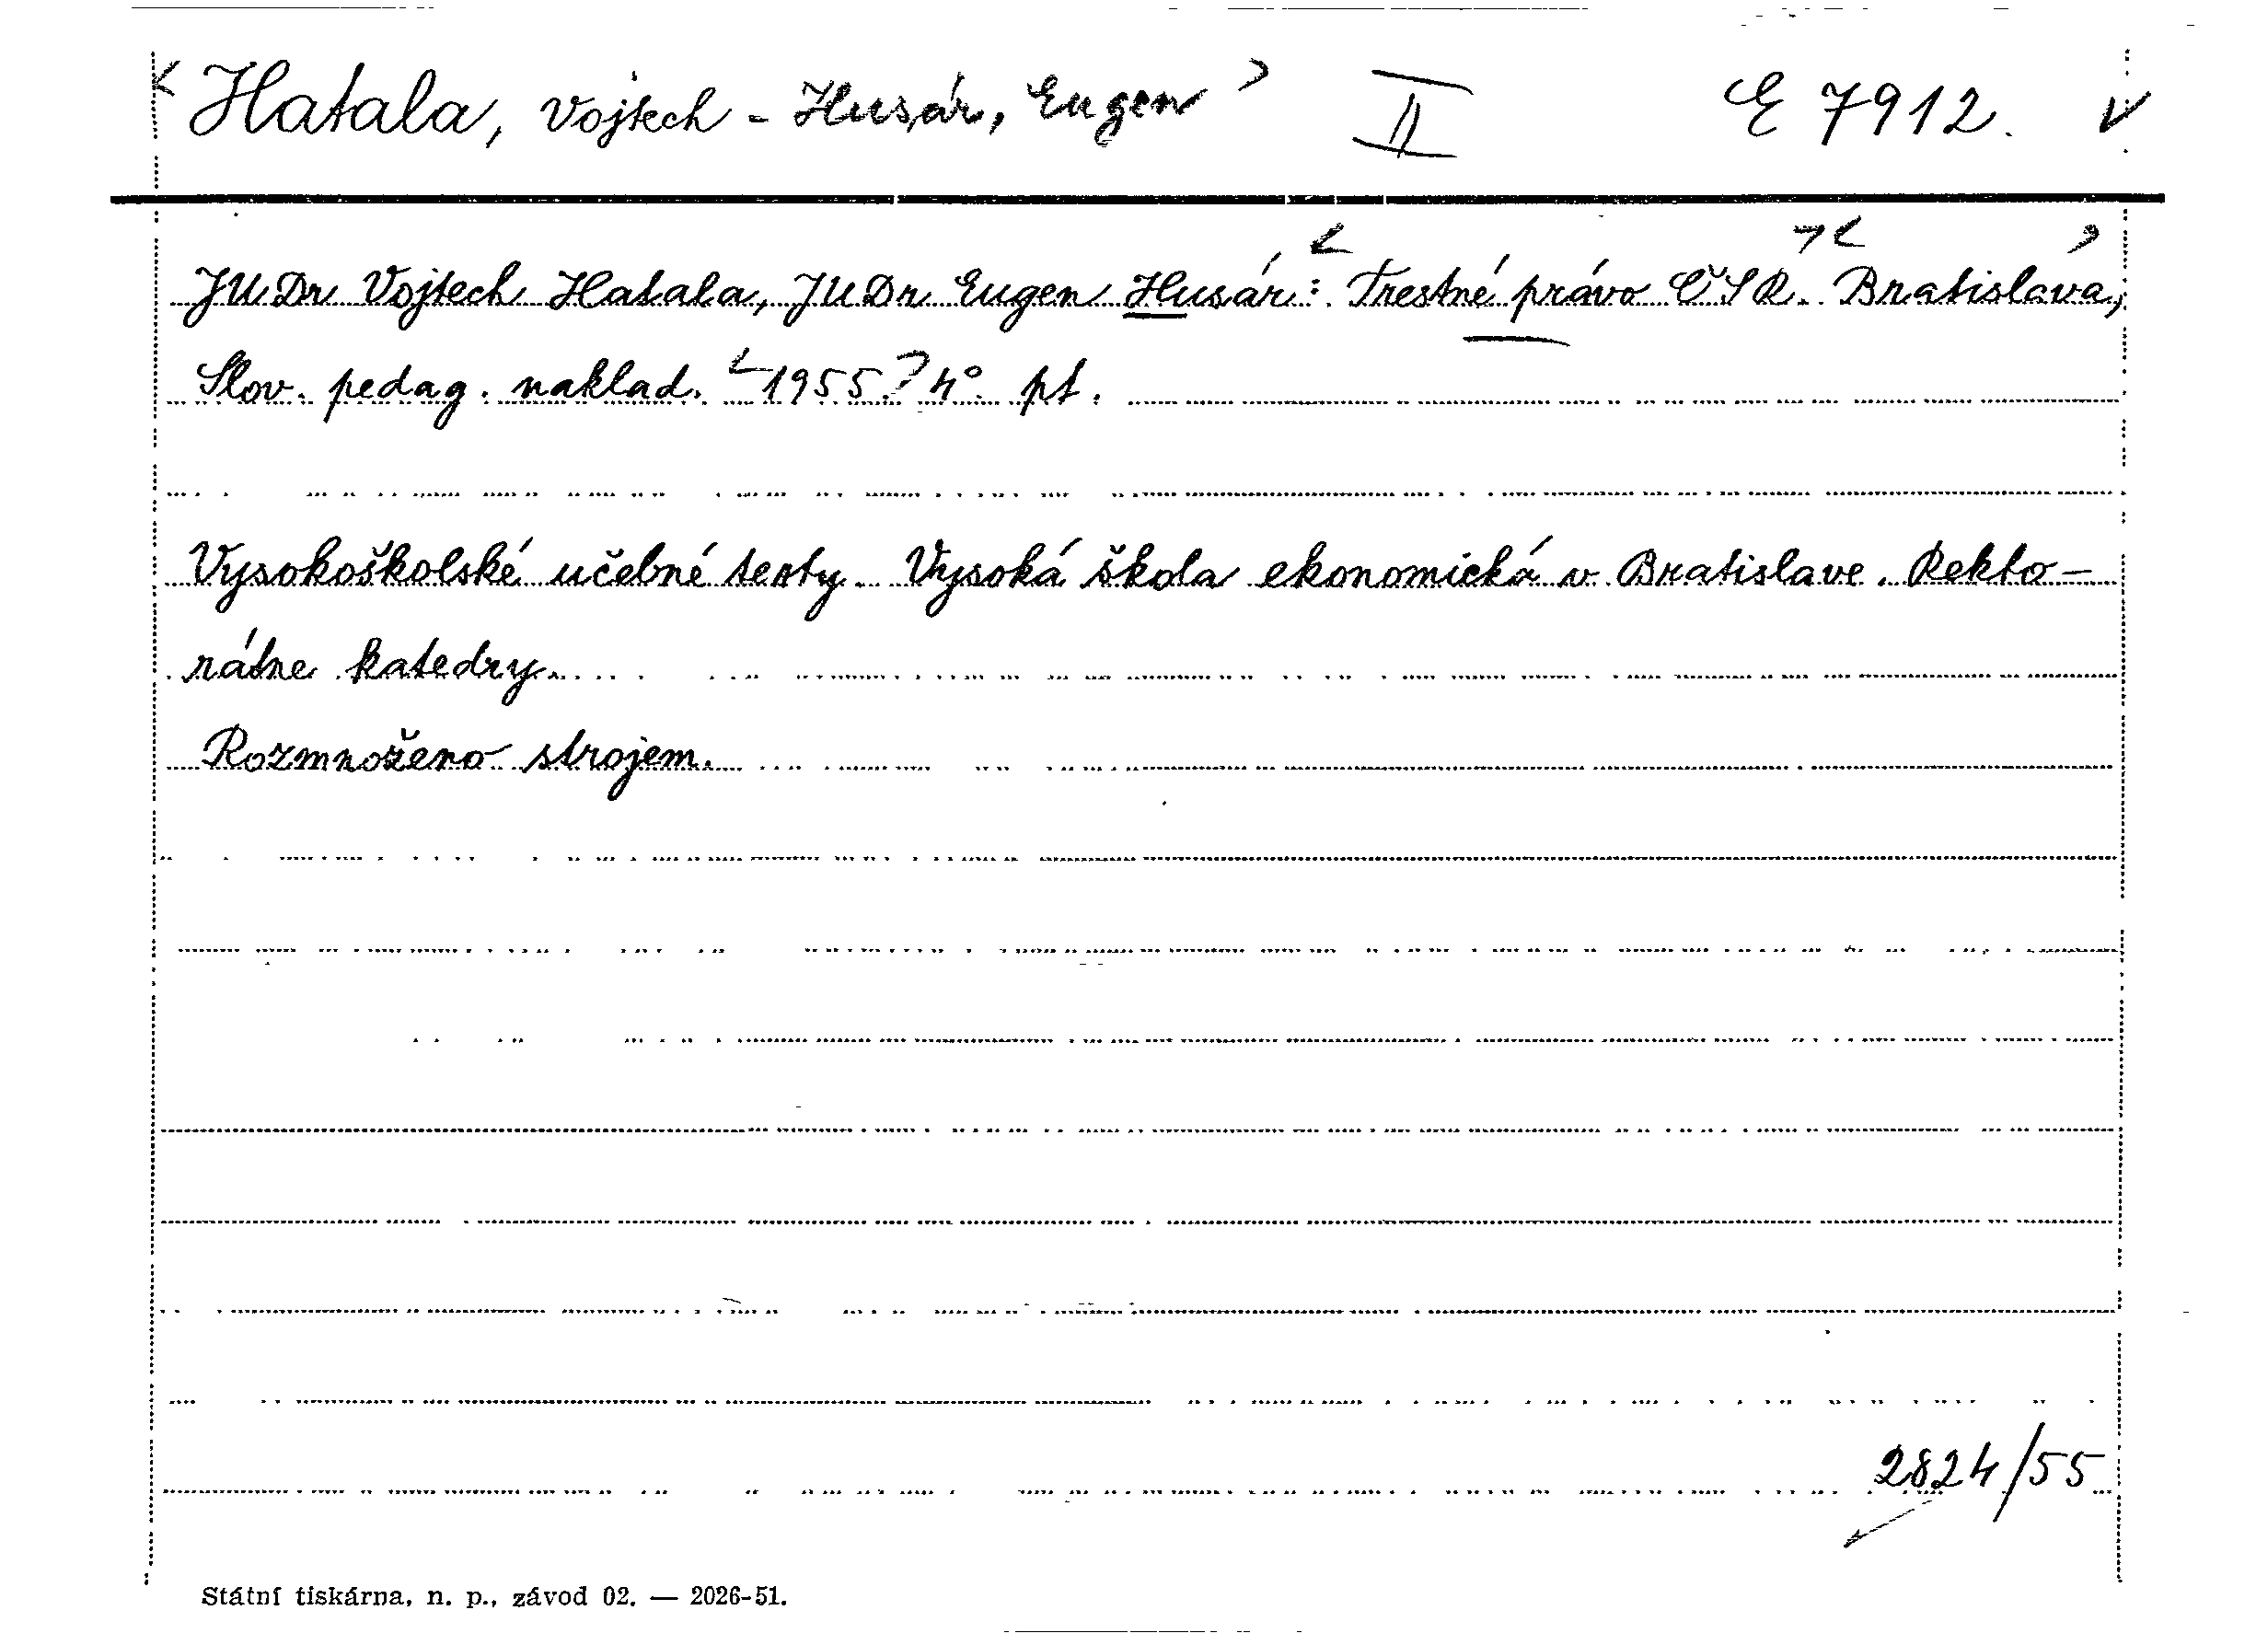 < Hatala, Vojtech - Husár, Eugen > II E 7912. V
JUDr Vojtech Hatala, JUDr Eugen Husár: < Trestné právo ČSR. > < Bratislava, >
Slov. pedag. naklad. < 1955. > 4° pt.
Vysokoškolské učebné texty. Vysoká škola ekonomická v Bratislave. Rekto-
rátne katedry.
Rozmnoženo strojem.
2824/55
Státní tiskárna, n. p., závod 02. — 2026-51.